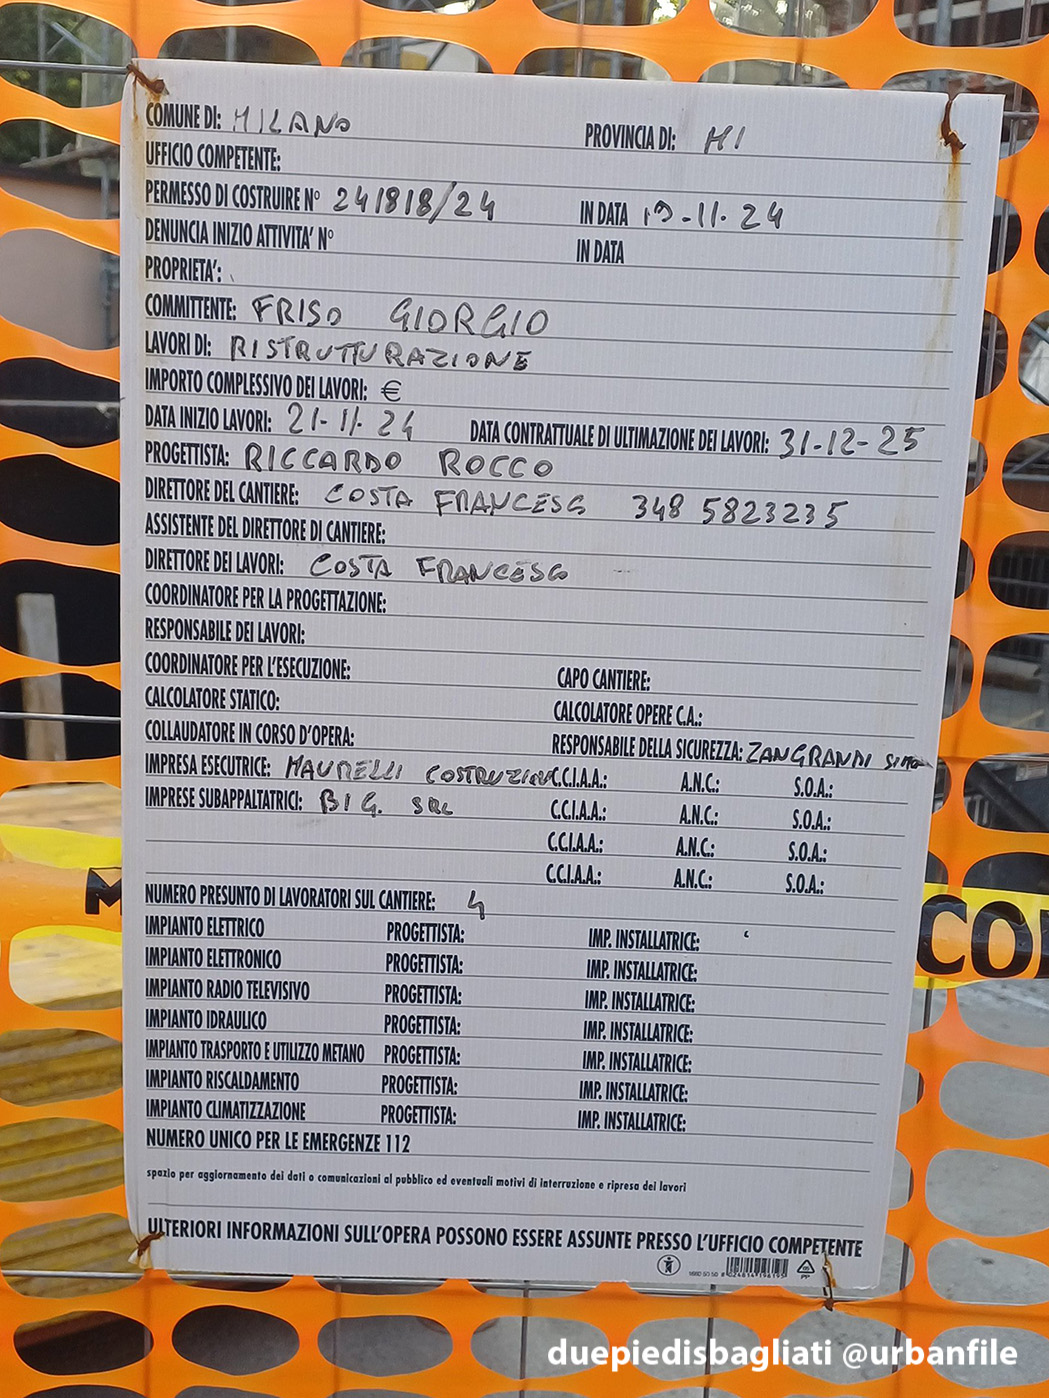 COMUNE DI: MILANO PROVINCIA DI: MI
UFFICIO COMPETENTE:
PERMESSO DI COSTRUIRE N° 241818/24 IN DATA 19-11-24
DENUNCIA INIZIO ATTIVITA' N° IN DATA
PROPRIETA':
COMMITTENTE: FRISO GIORGIO
LAVORI DI: RISTRUTTURAZIONE
IMPORTO COMPLESSIVO DEI LAVORI: €
DATA INIZIO LAVORI: 21-11-24 DATA CONTRATTUALE DI ULTIMAZIONE DEI LAVORI: 31-12-25
PROGETTISTA: RICCARDO ROCCO
DIRETTORE DEL CANTIERE: COSTA FRANCESCO 348 5823235
ASSISTENTE DEL DIRETTORE DI CANTIERE:
DIRETTORE DEI LAVORI: COSTA FRANCESCO
COORDINATORE PER LA PROGETTAZIONE:
RESPONSABILE DEI LAVORI:
COORDINATORE PER L'ESECUZIONE: CAPO CANTIERE:
CALCOLATORE STATICO: CALCOLATORE OPERE C.A.:
COLLAUDATORE IN CORSO D'OPERA: RESPONSABILE DELLA SICUREZZA: ZANGRANDI
IMPRESA ESECUTRICE: MAURELLI COSTRUZIONI C.C.I.A.A.: A.N.C.: S.O.A.:
IMPRESE SUBAPPALTATRICI: BIG. SRL C.C.I.A.A.: A.N.C.: S.O.A.:
C.C.I.A.A.: A.N.C.: S.O.A.:
C.C.I.A.A.: A.N.C.: S.O.A.:
NUMERO PRESUNTO DI LAVORATORI SUL CANTIERE: 4
IMPIANTO ELETTRICO PROGETTISTA: IMP. INSTALLATRICE:
IMPIANTO ELETTRONICO PROGETTISTA: IMP. INSTALLATRICE:
IMPIANTO RADIO TELEVISIVO PROGETTISTA: IMP. INSTALLATRICE:
IMPIANTO IDRAULICO PROGETTISTA: IMP. INSTALLATRICE:
IMPIANTO TRASPORTO E UTILIZZO METANO PROGETTISTA: IMP. INSTALLATRICE:
IMPIANTO RISCALDAMENTO PROGETTISTA: IMP. INSTALLATRICE:
IMPIANTO CLIMATIZZAZIONE PROGETTISTA: IMP. INSTALLATRICE:
NUMERO UNICO PER LE EMERGENZE 112
spazio per aggiornamento dei dati o comunicazioni al pubblico ed eventuali motivi di interruzione e ripresa dei lavori
ULTERIORI INFORMAZIONI SULL'OPERA POSSONO ESSERE ASSUNTE PRESSO L'UFFICIO COMPETENTE
duepiedisbagliati @urbanfile